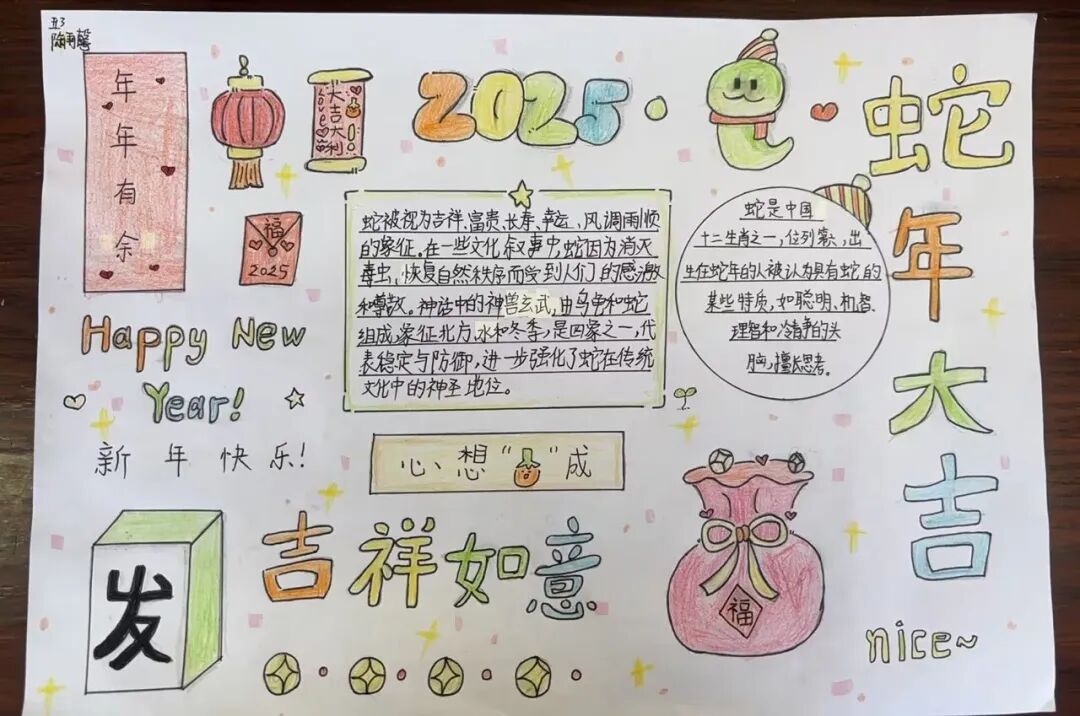 五3
年年有余
大吉大利
Love
2025
蛇年大吉
福
2025
蛇被视为吉祥、富贵、长寿、幸运、风调雨顺
的象征。在一些文化叙事中,蛇因为消灭
毒虫,恢复自然秩序而受到人们的感激
和尊敬。神话中的神兽玄武,由乌龟和蛇
组成,象征北方、水和冬季,是四象之一,代
表稳定与防御,进一步强化了蛇在传统
文化中的神圣地位。
蛇是中国
十二生肖之一,位列第六,出
生在蛇年的人被认为具有蛇的
某些特质,如聪明、机智、
理智和冷静的头
脑,擅长思考。
Happy New
Year!
新年快乐!
心想“ ”成
发
吉祥如意
福
nice~